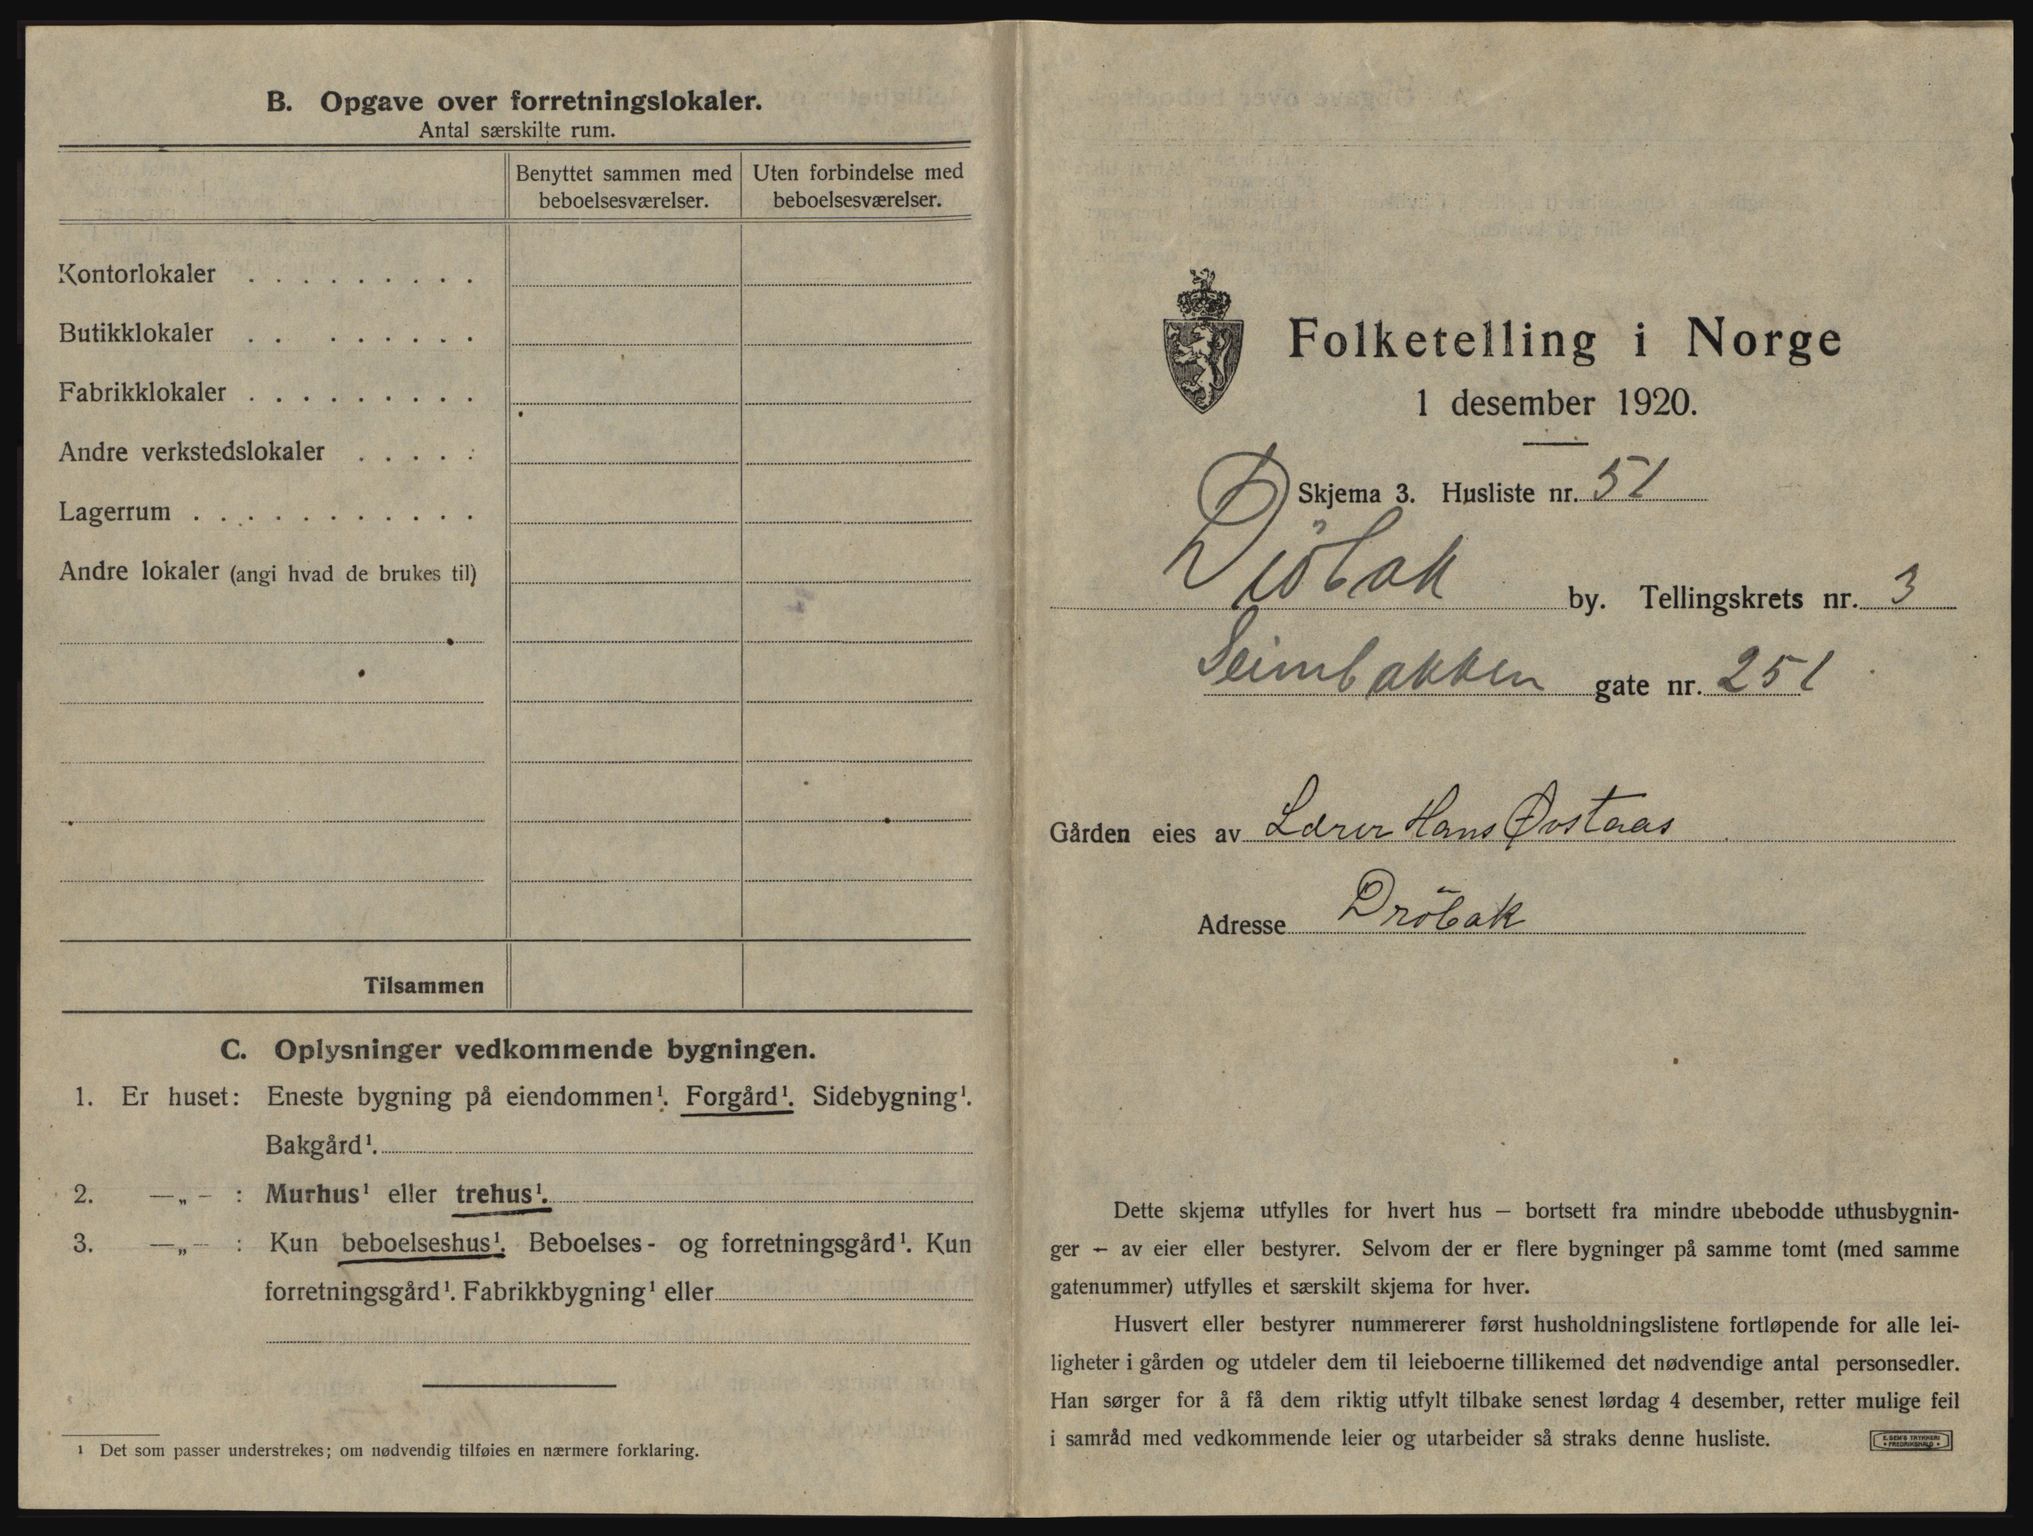 B. Opgave over forretningslokaler.
Antal særskilte rum.
Benyttet sammen med beboelsesværelser.
Uten forbindelse med beboelsesværelser.
Kontorlokaler . . . . . . . . .
Butikklokaler . . . . . . . .
Fabrikklokaler . . . . . . . . .
Andre verkstedslokaler . . . . .
Lagerrum . . . . . . . . . . .
Andre lokaler (angi hvad de brukes til)
Tilsammen
C. Oplysninger vedkommende bygningen.
1. Er huset: Eneste bygning på eiendommen¹. Forgård¹. Sidebygning¹.
Bakgård¹.
2. —„— : Murhus¹ eller trehus¹.
3. —„— : Kun beboelseshus¹. Beboelses- og forretningsgård¹. Kun
forretningsgård¹. Fabrikkbygning¹ eller
¹ Det som passer understrekes; om nødvendig tilføies en nærmere forklaring.
Folketelling i Norge
1 desember 1920.
Skjema 3. Husliste nr. 51
Dröbak by. Tellingskrets nr. 3
Seimbakken gate nr. 251
Gården eies av Lærer Hans Øvstaas
Adresse Dröbak
Dette skjema utfylles for hvert hus — bortsett fra mindre ubebodde uthusbygnin-
ger — av eier eller bestyrer. Selvom der er flere bygninger på samme tomt (med samme
gatenummer) utfylles et særskilt skjema for hver.
Husvert eller bestyrer nummererer først husholdningslistene fortløpende for alle lei-
ligheter i gården og utdeler dem til leieboerne tillikemed det nødvendige antal personsedler.
Han sørger for å få dem riktig utfylt tilbake senest lørdag 4 desember, retter mulige feil
i samråd med vedkommende leier og utarbeider så straks denne husliste.
E. SEM'S TRYKKERI
FREDRIKSHALD